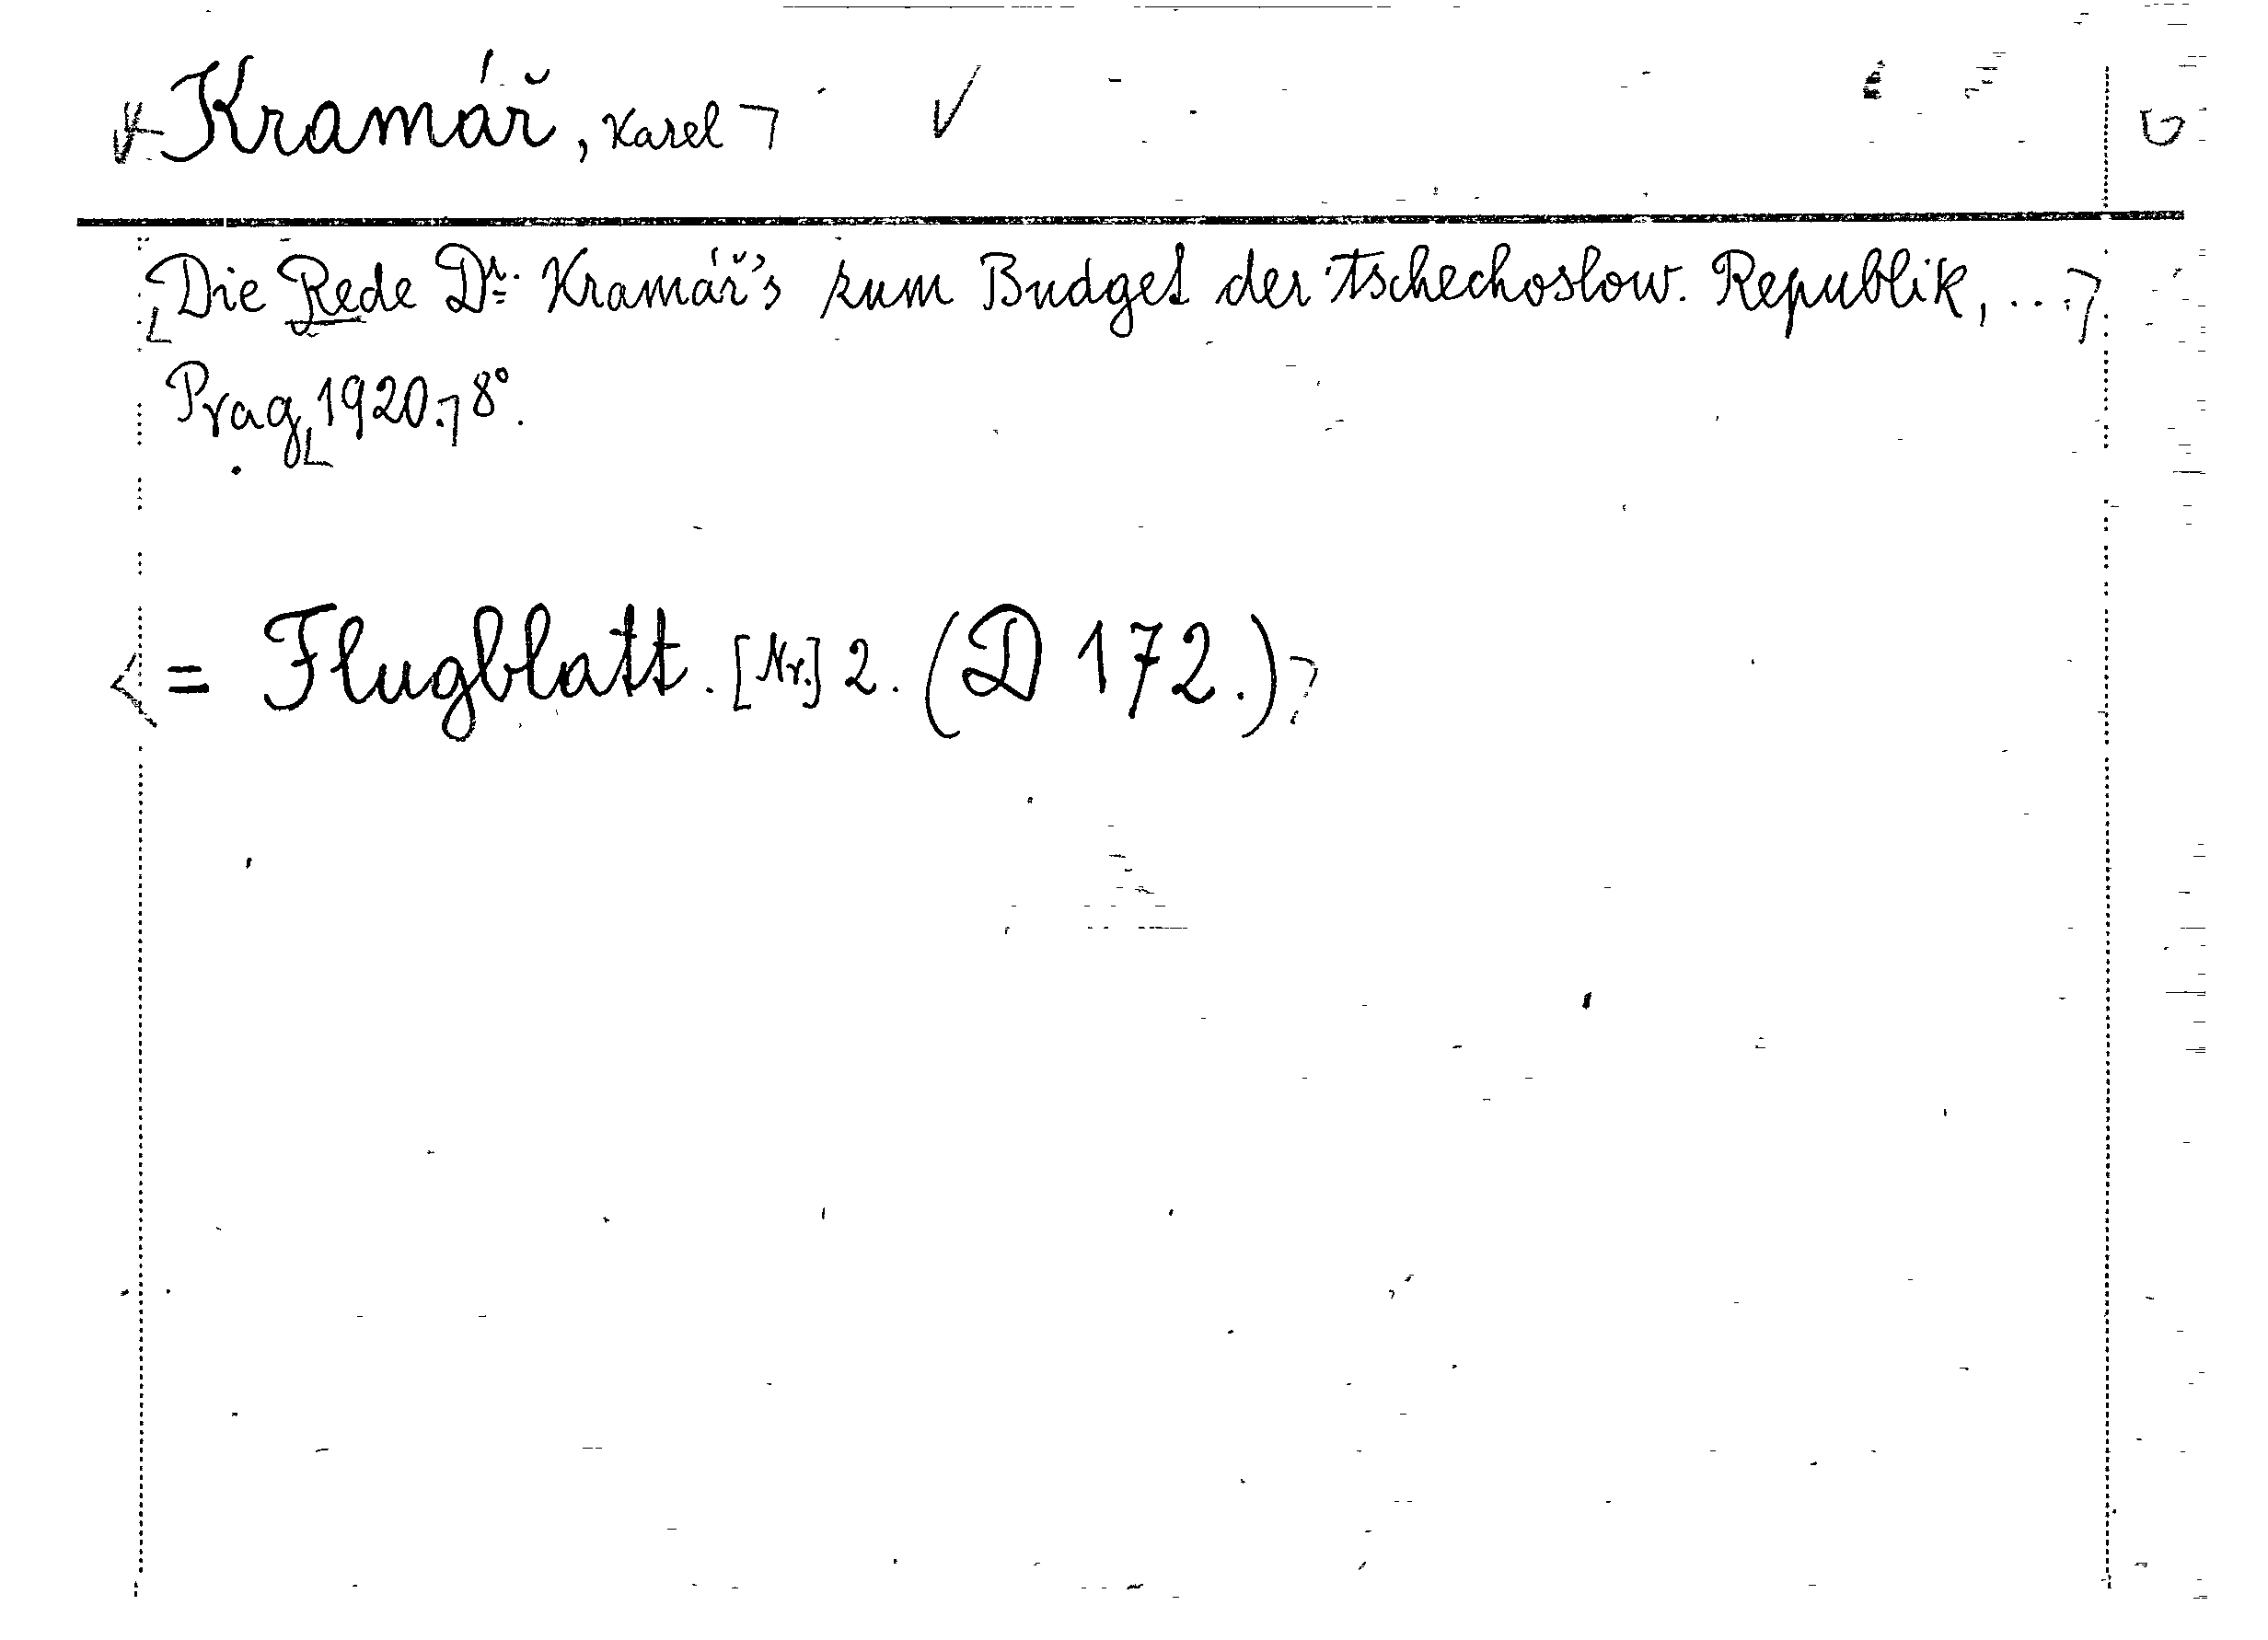 Kramář, Karel
Die Rede Dr. Kramář's zum Budget der tschechoslow. Republik, ...
Prag 1920. 8°.
= Flugblatt. [Nr.] 2. (D 172.)